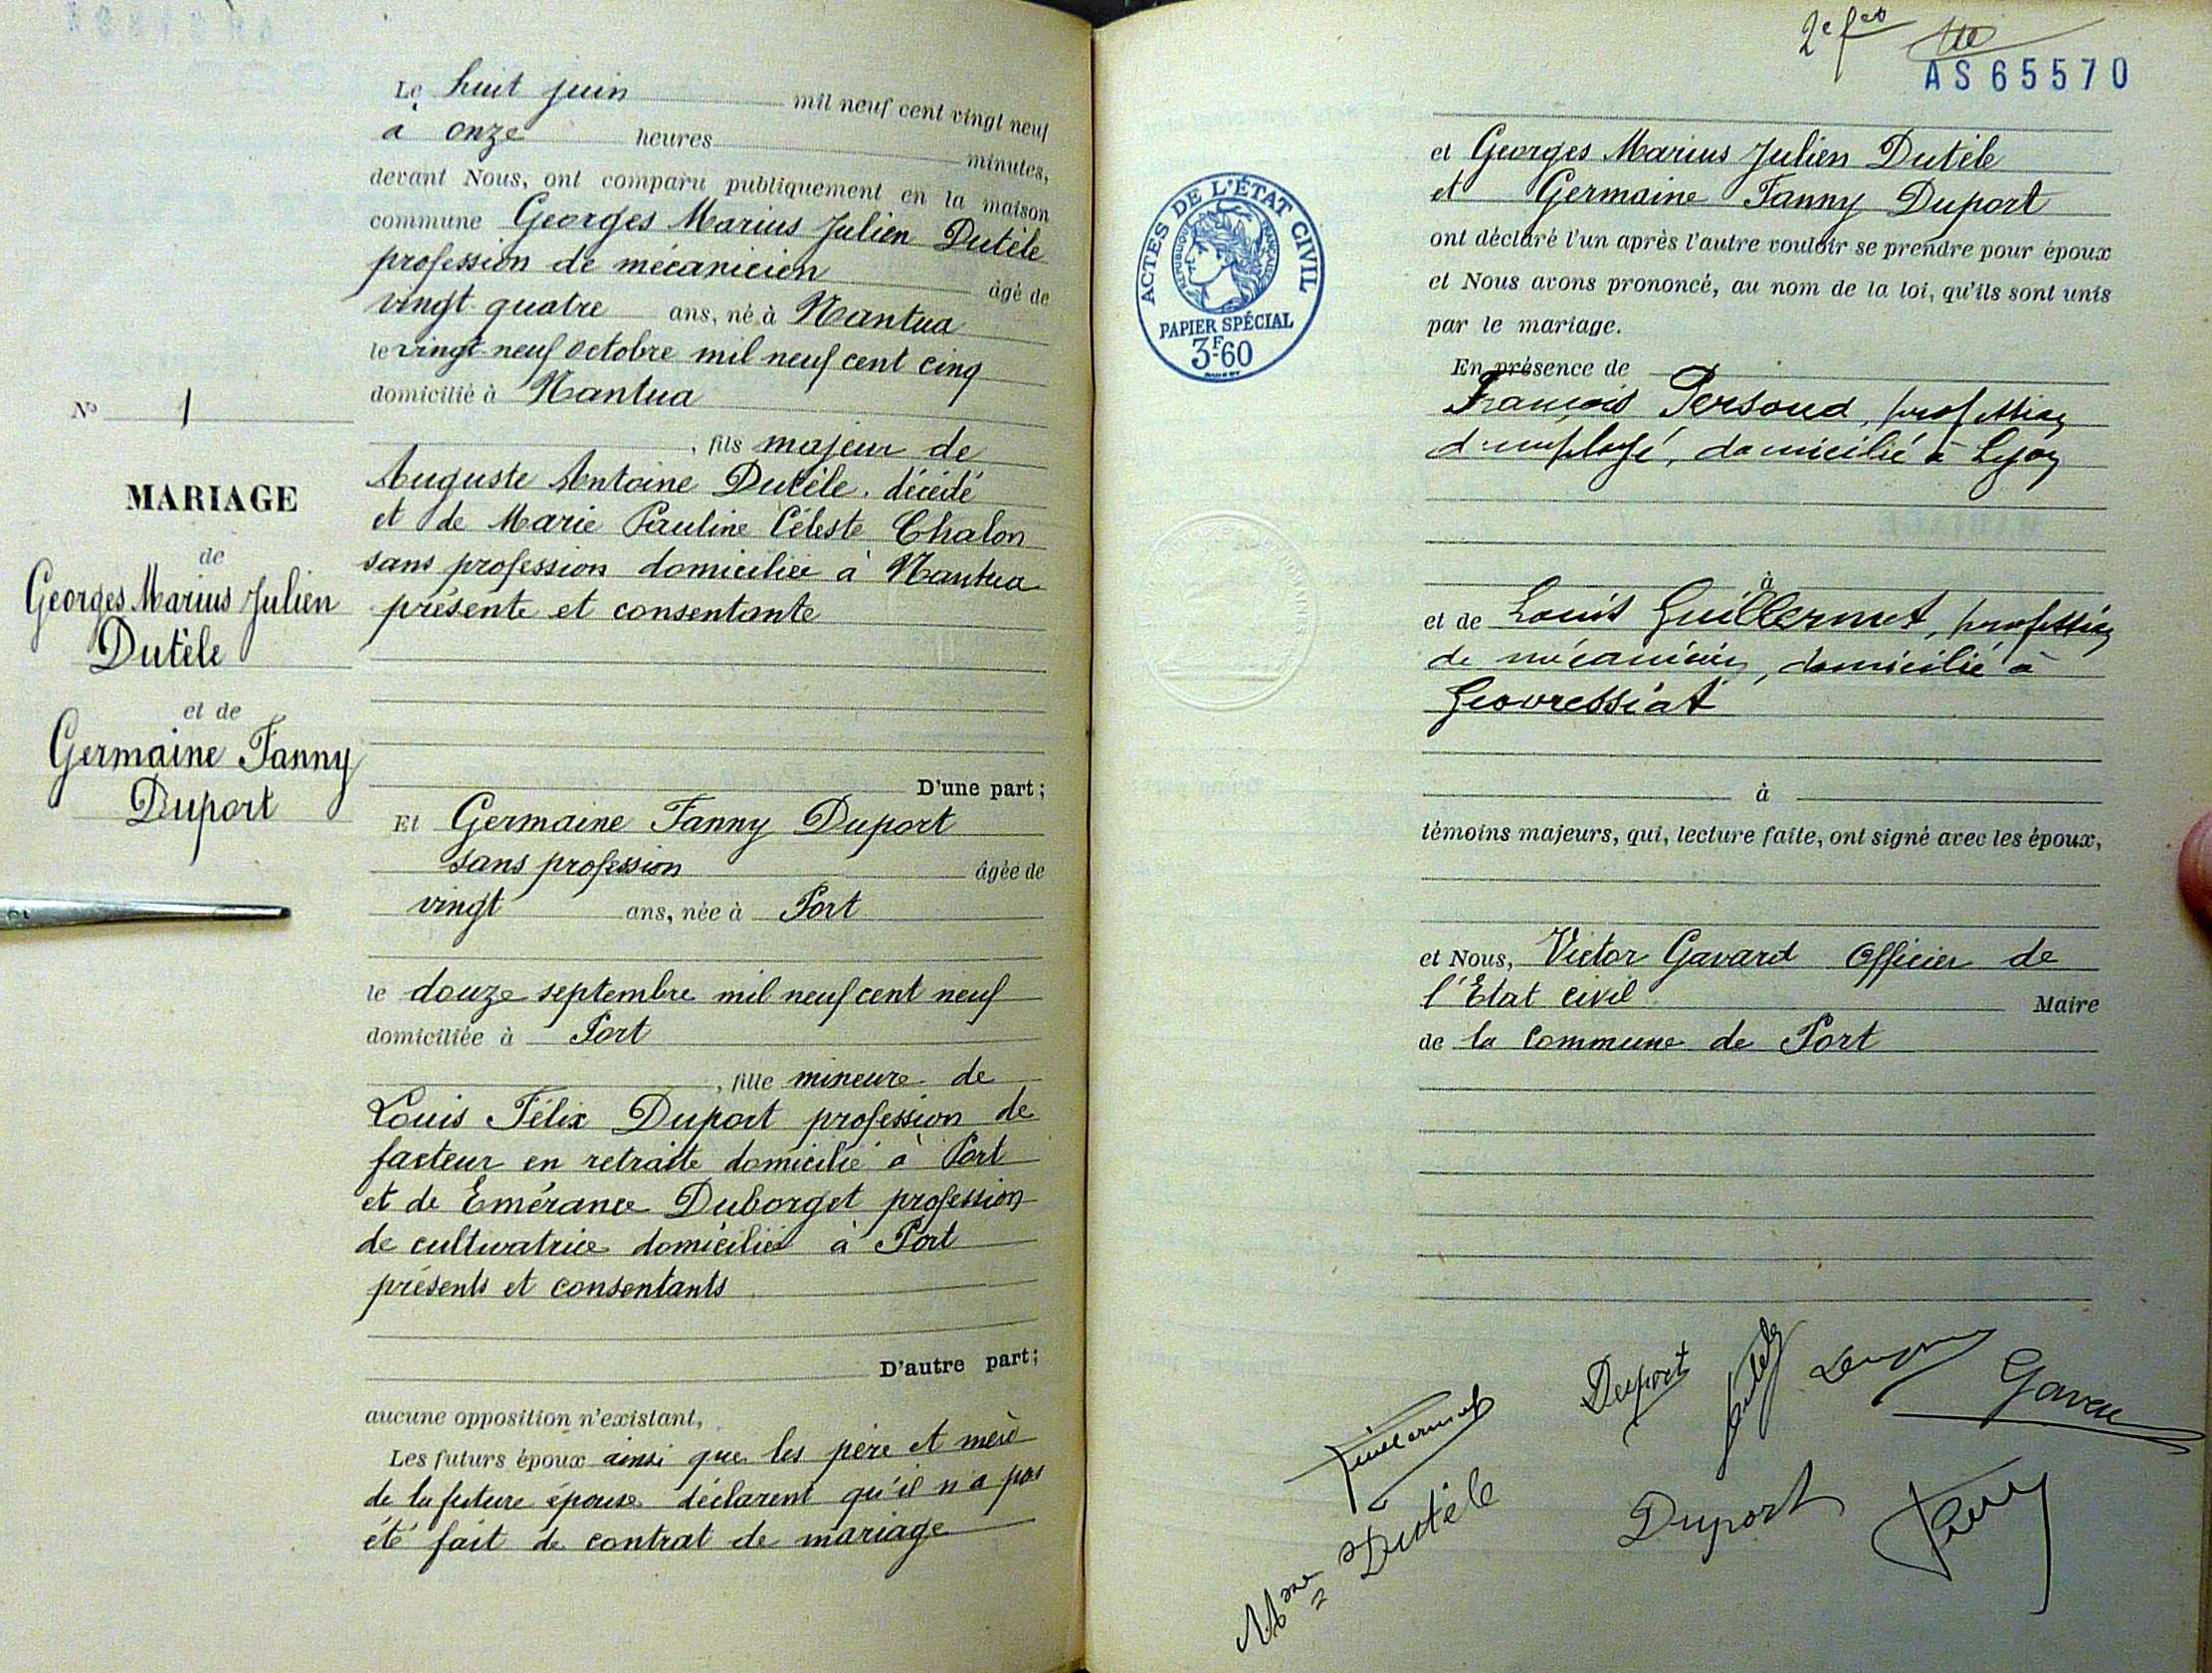 N° 1
MARIAGE
de
Georges Marius Julien
Dutèle
et de
Germaine Fanny
Duport
Le huit juin mil neuf cent vingt neuf
à onze heures minutes,
devant Nous, ont comparu publiquement en la maison
commune Georges Marius Julien Dutèle
profession de mécanicien âgé de
vingt quatre ans, né à Nantua
le vingt-neuf octobre mil neuf cent cinq
domicilié à Nantua
, fils majeur de
Auguste Antoine Dutèle, décédé
et de Marie Pauline Céleste Chalon
sans profession domiciliée à Nantua
présente et consentante
D'une part;
Et Germaine Fanny Duport
sans profession âgée de
vingt ans, née à Port
le douze septembre mil neuf cent neuf
domiciliée à Port
, fille mineure de
Louis Félix Duport profession de
facteur en retraite domicilié à Port
et de Emérance Duborget profession
de cultivatrice domiciliée à Port
présents et consentants
D'autre part;
aucune opposition n'existant,
Les futurs époux ainsi que les père et mère
de la future épouse déclarent qu'il n'a pas
été fait de contrat de mariage
2e
AS65570
ACTES DE L'ÉTAT CIVIL
RÉPUBLIQUE FRANÇAISE
PAPIER SPÉCIAL
3F60
et Georges Marius Julien Dutèle
et Germaine Fanny Duport
ont déclaré l'un après l'autre vouloir se prendre pour époux
et Nous avons prononcé, au nom de la loi, qu'ils sont unis
par le mariage.
En présence de
François Persoud, profession
d'employé, domicilié à Lyon
à
et de Louis Guillermet, profession
de mécanicien, domicilié à
Geovressiat
à
témoins majeurs, qui, lecture faite, ont signé avec les époux,
et Nous, Victor Gavard Officier de
l'Etat civil Maire
de la Commune de Port
Duport
Guillermet
Dutèle
Gavard
Mme Dutèle
Duport